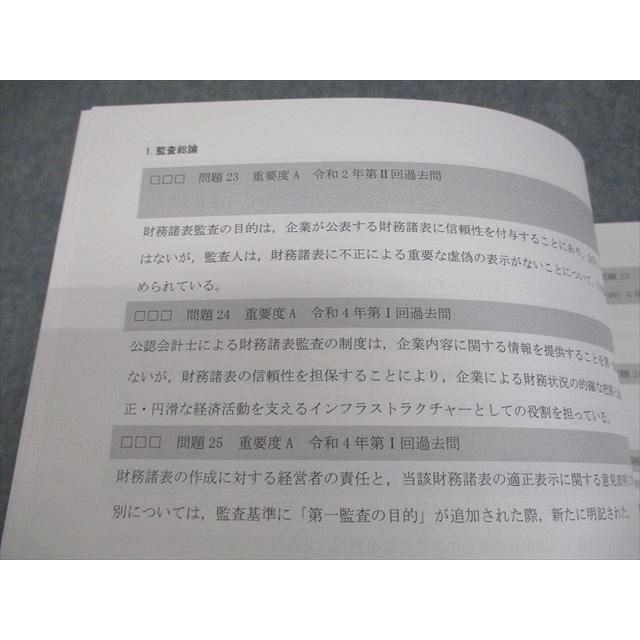 1. 監査総論
□□□ 問題23 重要度A 令和2年第Ⅱ回過去問
財務諸表監査の目的は，企業が公表する財務諸表に信頼性を付与することにあり，
はないが，監査人は，財務諸表に不正による重要な虚偽の表示がないことについて，
められている。
□□□ 問題24 重要度A 令和4年第Ⅰ回過去問
公認会計士による財務諸表監査の制度は，企業内容に関する情報を提供することを第一
ないが，財務諸表の信頼性を担保することにより，企業による財務状況の的確な把握と
正・円滑な経済活動を支えるインフラストラクチャーとしての役割を担っている。
□□□ 問題25 重要度A 令和4年第Ⅰ回過去問
財務諸表の作成に対する経営者の責任と，当該財務諸表の適正表示に関する意見表明に
別については，監査基準に「第一監査の目的」が追加された際，新たに明記された。